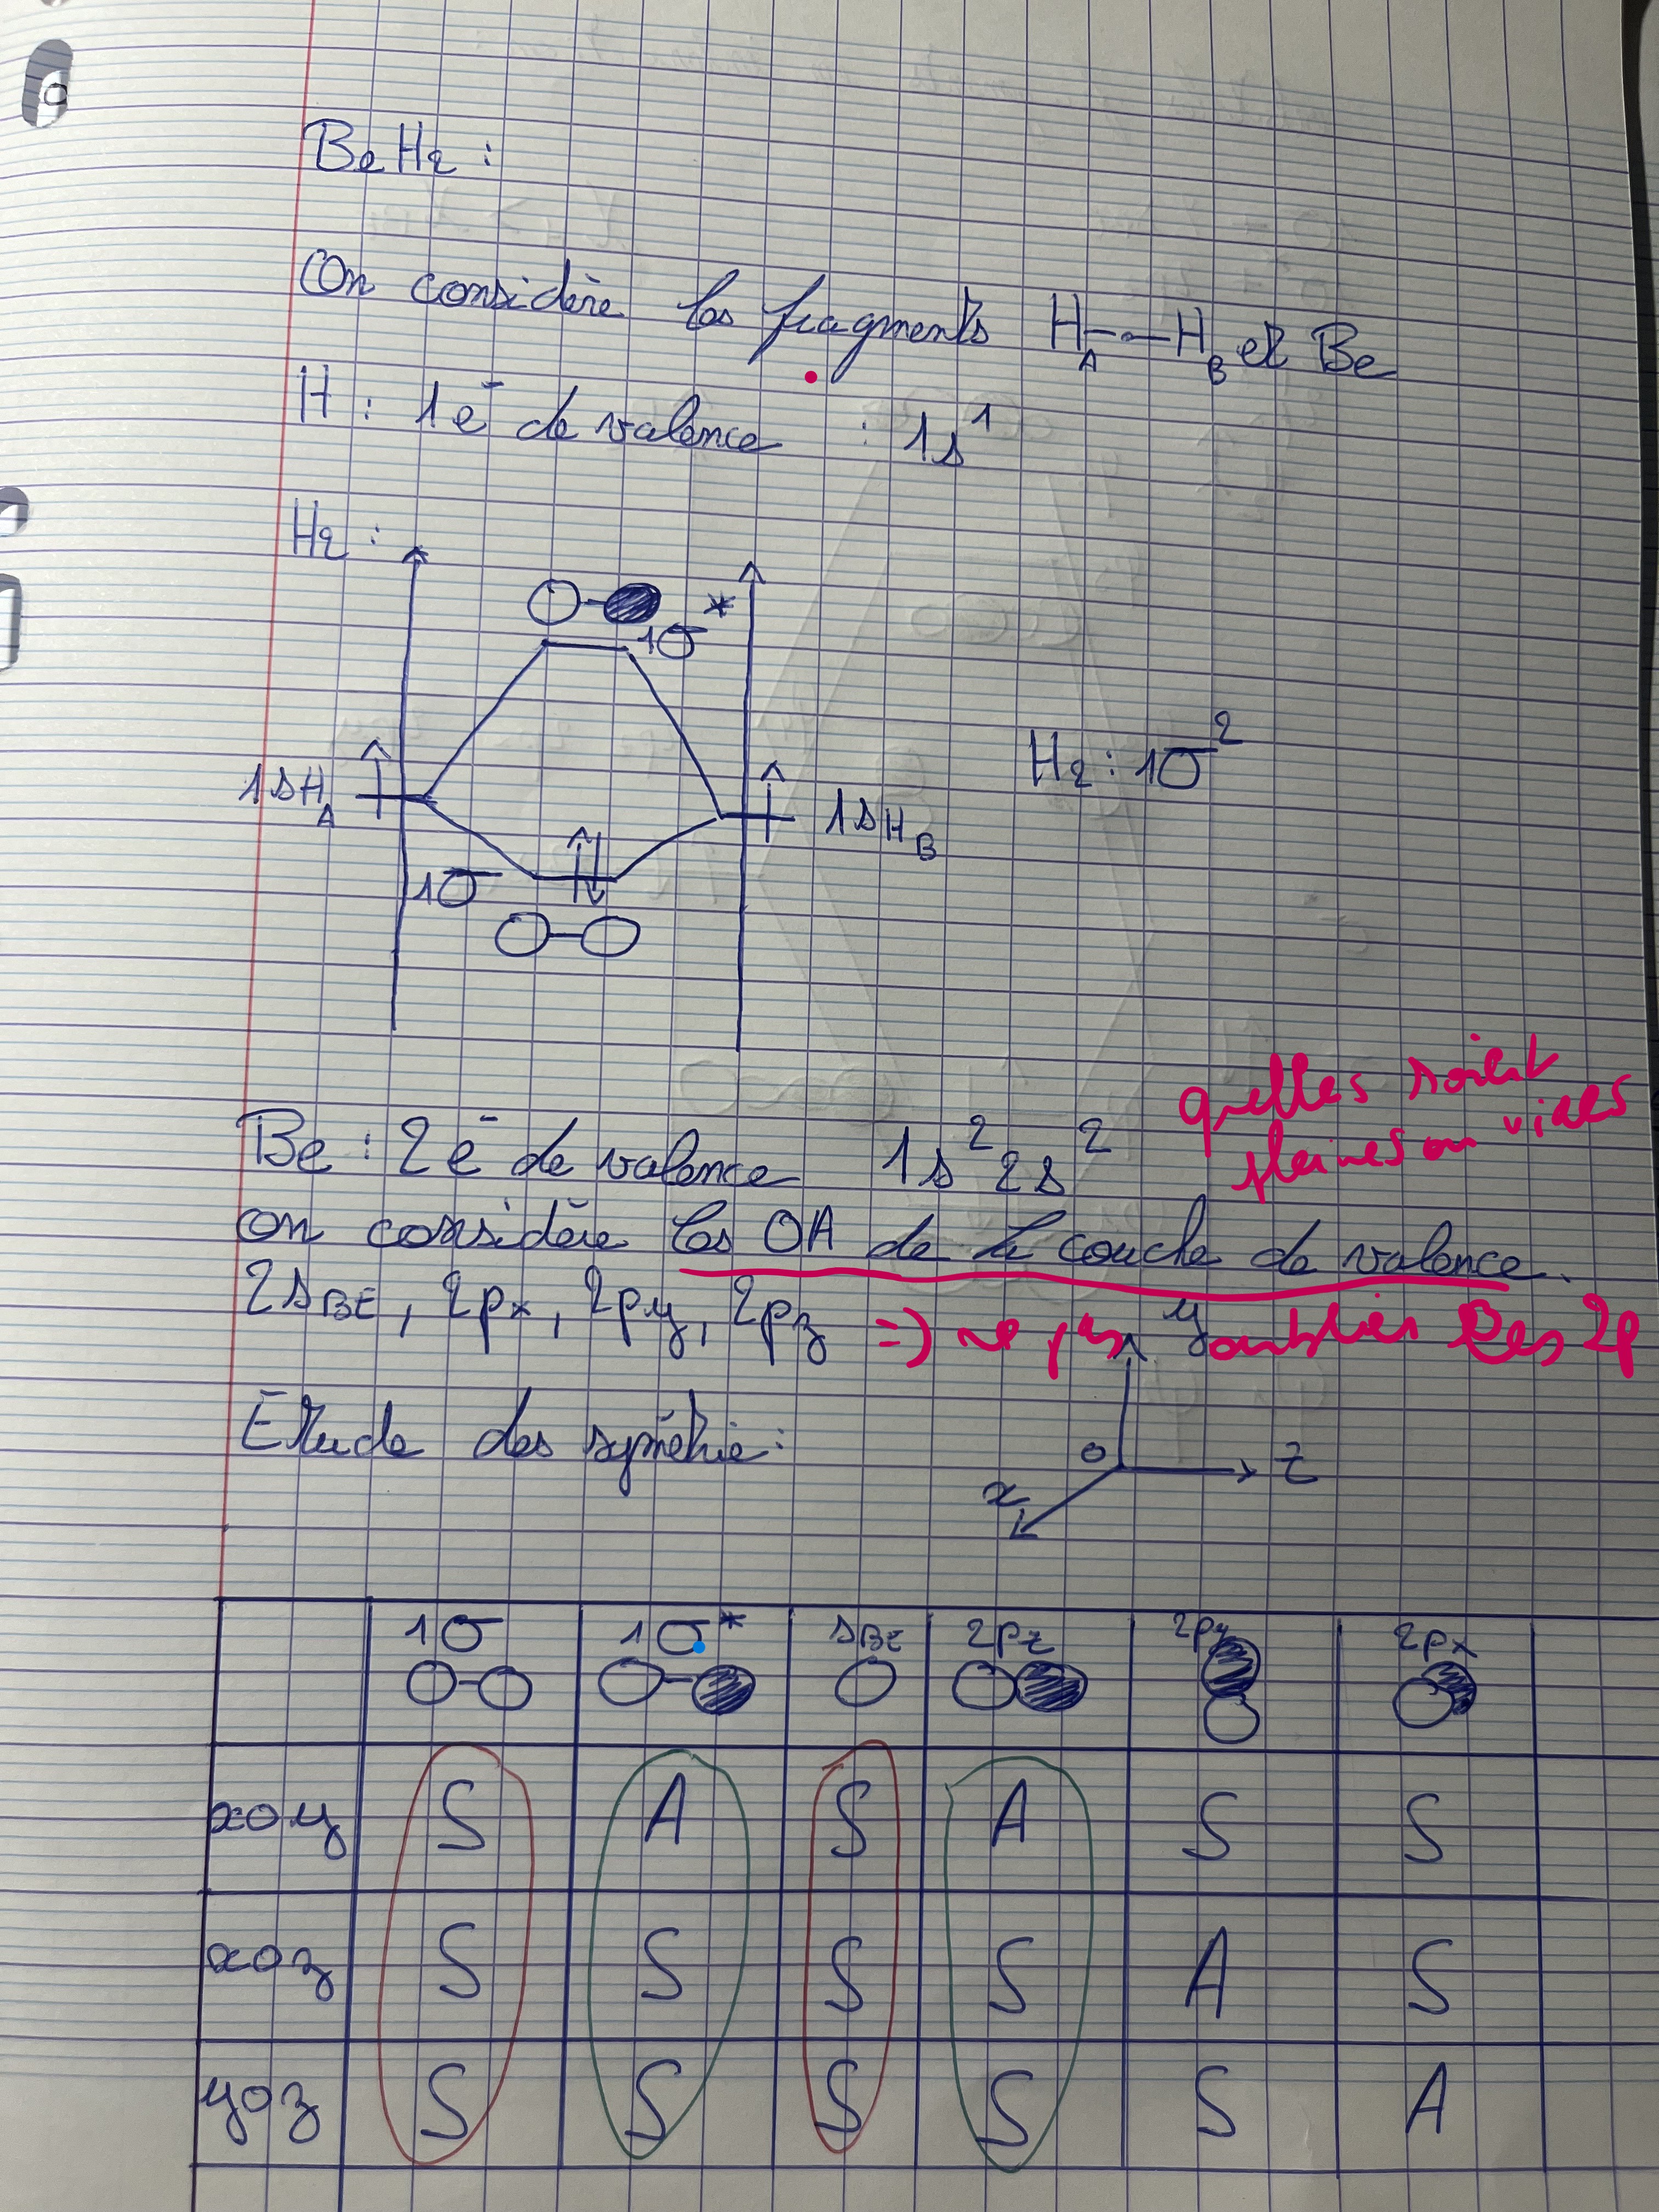 BeH2 :
On considère les fragments H_A - - H_B et Be
H : 1e⁻ de valence : 1s¹
H2 :
*
1σ
1sH_A
1sH_B
H2 : 1σ²
1σ
quelles soient
pleines ou vides
Be : 2e⁻ de valence 1s² 2s²
on considère les OA de la couche de valence.
2sBE, 2px, 2py, 2pz => ne pas oublier les 2p
y
Etude des symétrie :
O
z
x
1σ 1σ* sBE 2pz 2py 2px
xoy S A S A S S
xoz S S S S A S
yoz S S S S S A